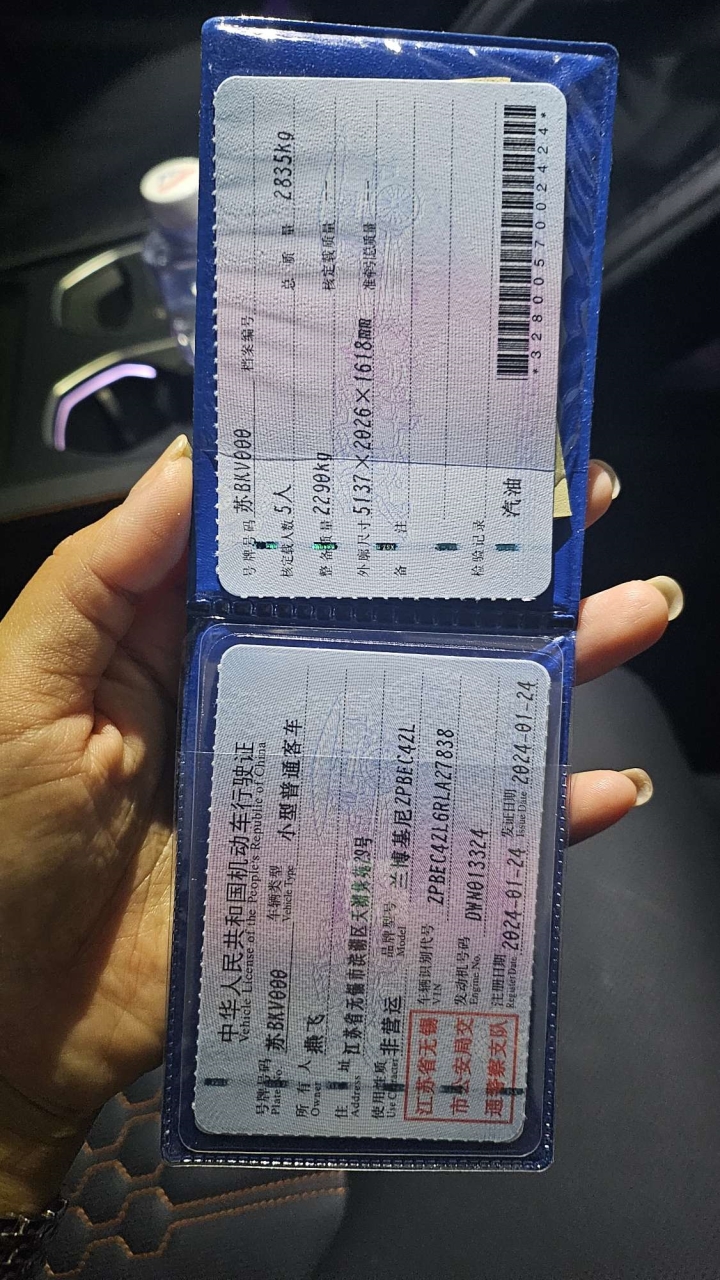 中华人民共和国机动车行驶证
Vehicle License of the People's Republic of China
号牌号码 苏BKV000 车辆类型 小型普通客车
Plate No. Vehicle Type
所有人 燕飞
Owner
住址 江苏省无锡市滨湖区天湖
Address
使用性质 非营运 品牌型号 兰博基尼ZPBEC42L
Use Character Model
江苏省无锡
市公安局交
通警察支队
车辆识别代号 ZPBEC42L6RLA27838
VIN
发动机号码 DWN013324
Engine No.
注册日期 2024-01-24 发证日期 2024-01-24
Register Date Issue Date
号牌号码 苏BKV000 档案编号
核定载人数 5人 总质量 2835kg
整备质量 2290kg 核定载质量 --
外廓尺寸 5137×2026×1618mm 准牵引总质量 --
备注
检验记录
汽油
*3280057002424*